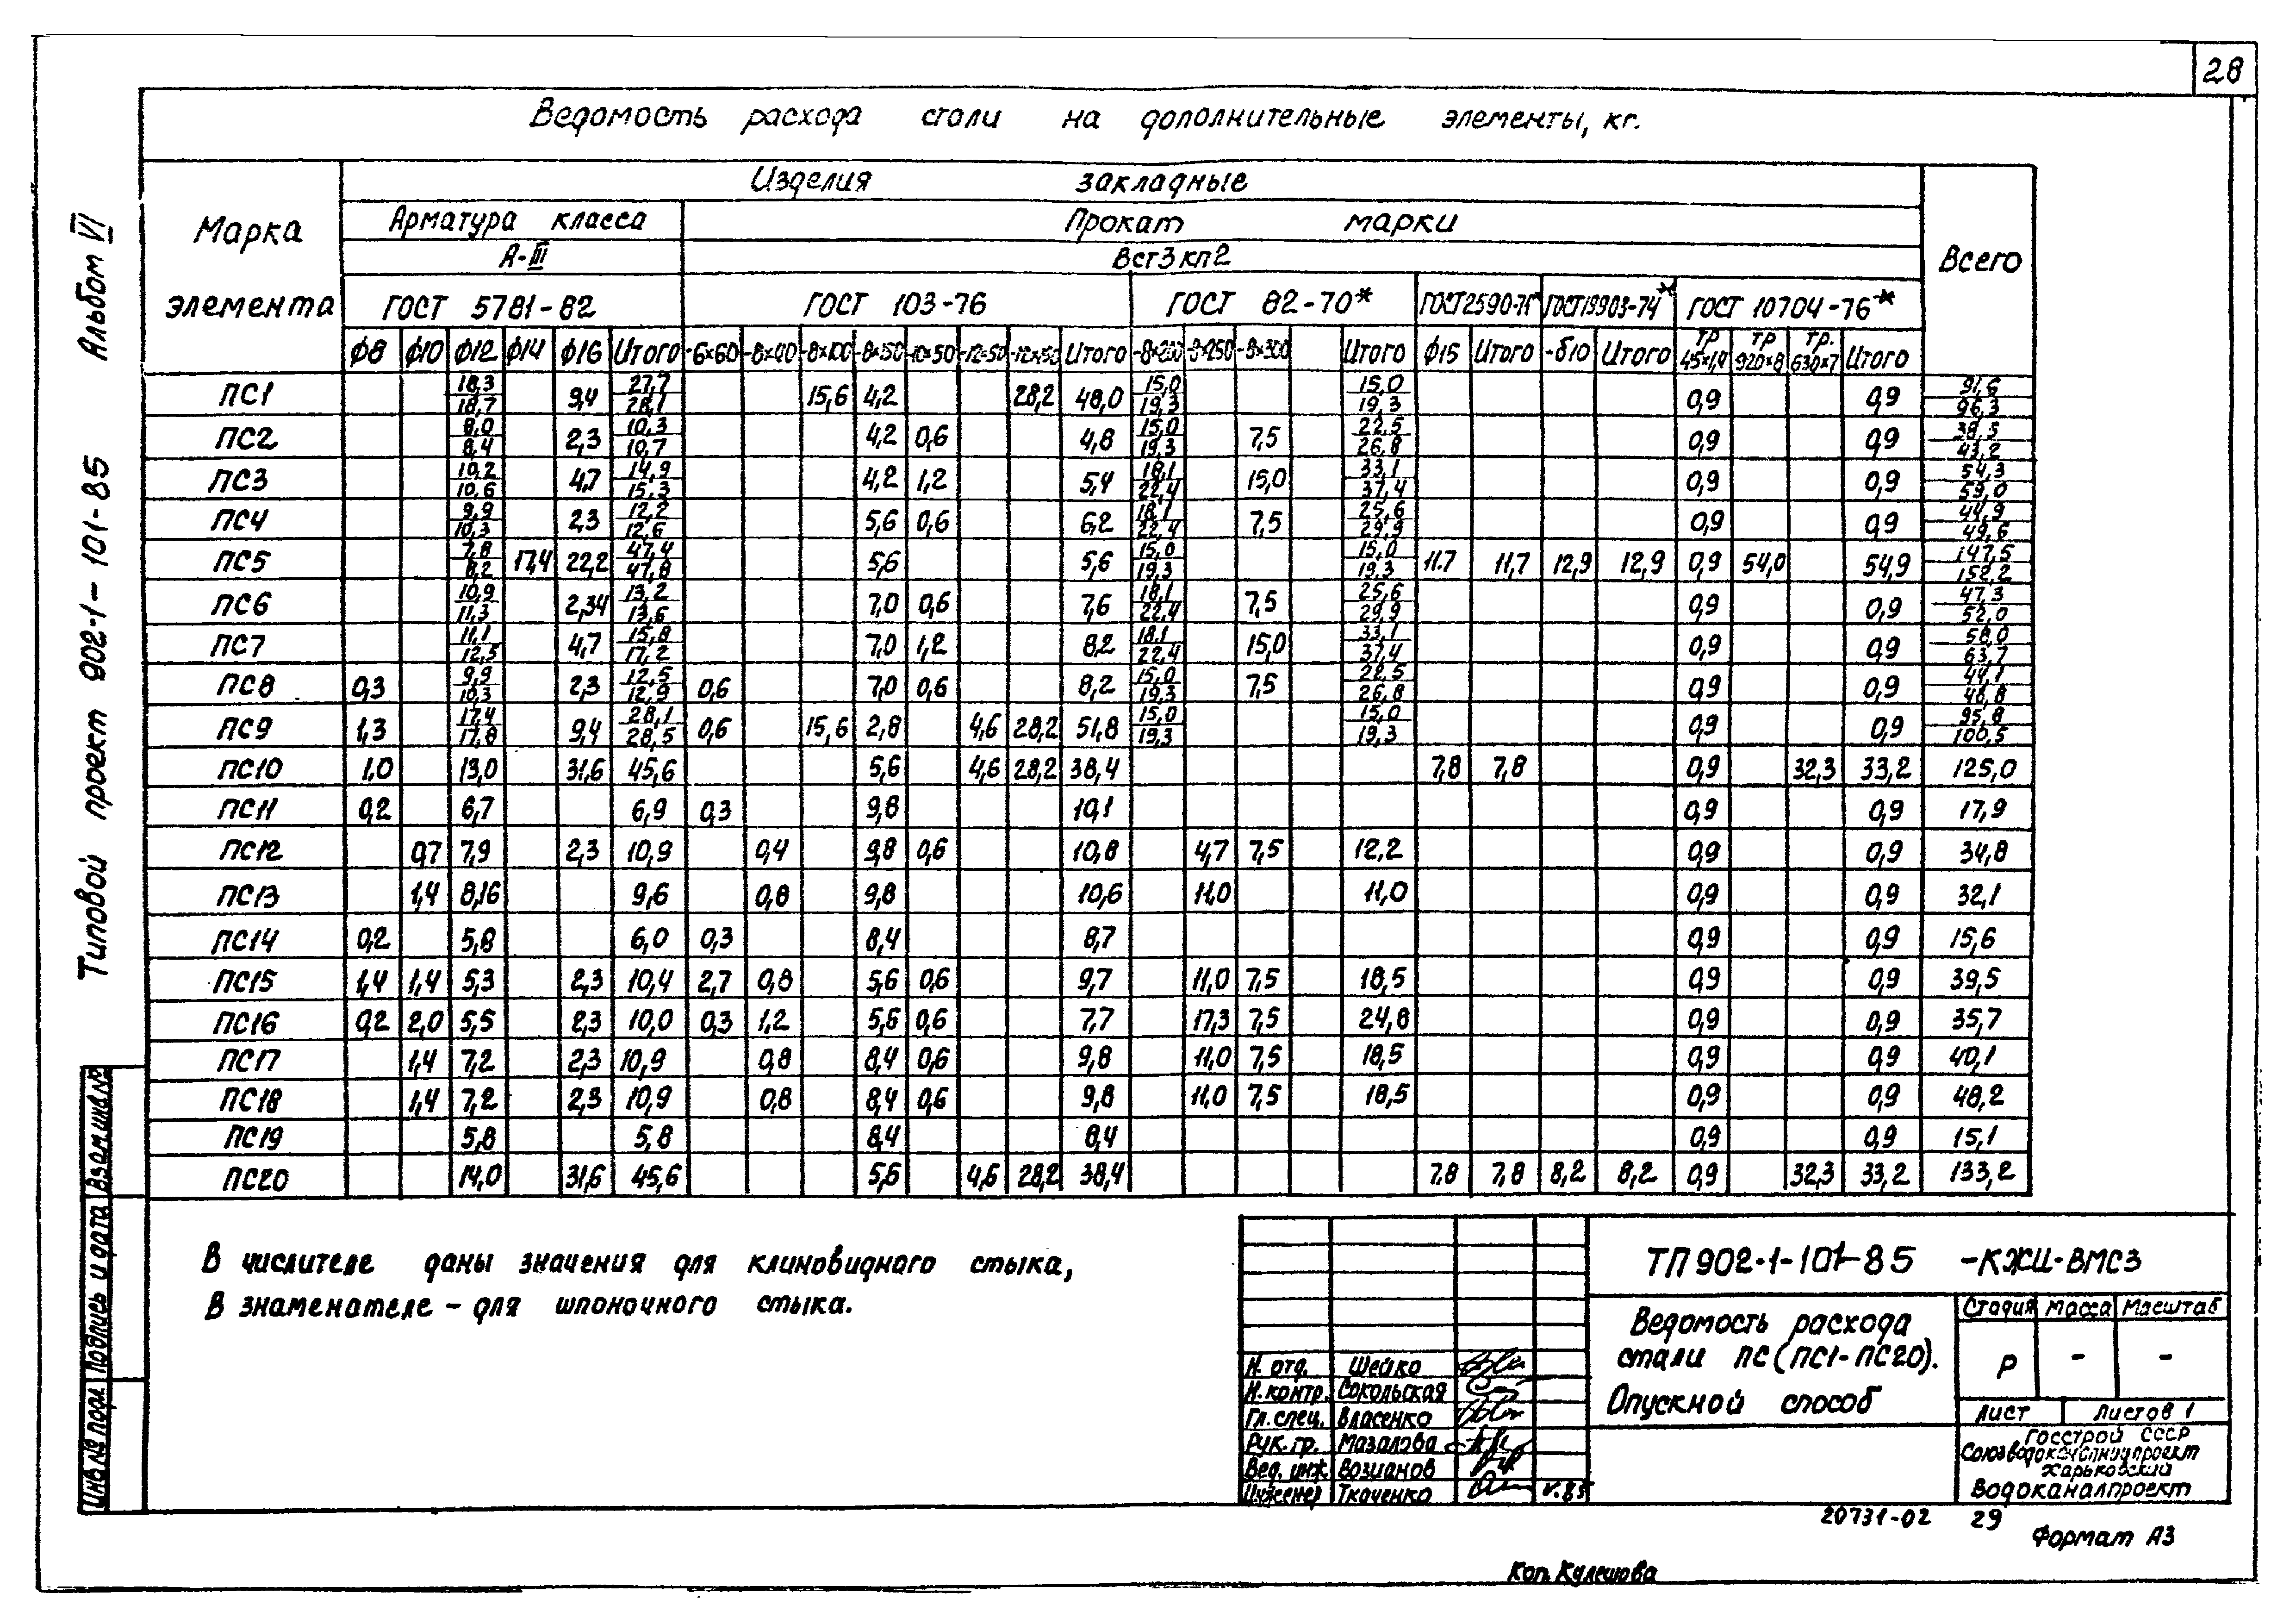 28
Ведомость расхода стали на дополнительные элементы, кг.
Альбом VI
Типовой проект 902-1-101-85
Марка элемента
Изделия закладные
Всего
Арматура класса
Прокат марки
А-III
Вст3кп2
ГОСТ 5781-82
ГОСТ 103-76
ГОСТ 82-70*
ГОСТ2590-71*
ГОСТ19903-74*
ГОСТ 10704-76*
ф8 ф10 ф12 ф14 ф16 Итого -6×60 -8×40 -8×100 -8×150 -10×50 -12×50 Итого -8×200 -8×250 -8×300 Итого ф15 Итого -δ10 Итого тр 45×1,4 тр 920×8 тр. 630×7 Итого
ПС1 18,3/18,7 9,4 27,7/28,1 15,6 4,2 28,2 48,0 15,0/19,3 15,0/19,3 0,9 0,9 91,6/96,3
ПС2 8,0/8,4 2,3 10,3/10,7 4,2 0,6 4,8 15,0/19,3 7,5 22,5/26,8 0,9 0,9 38,5/43,2
ПС3 10,2/10,6 4,7 14,9/15,3 4,2 1,2 5,4 18,1/22,4 15,0 33,1/37,4 0,9 0,9 54,3/59,0
ПС4 9,9/10,3 2,3 12,2/12,6 5,6 0,6 6,2 18,1/22,4 7,5 25,6/29,9 0,9 0,9 44,9/49,6
ПС5 7,8/8,2 17,4 22,2 47,4/47,8 5,6 5,6 15,0/19,3 15,0/19,3 11.7 11,7 12,9 12,9 0,9 54,0 54,9 147,5/152,2
ПС6 10,9/11,3 2,34 13,2/13,6 7,0 0,6 7,6 18,1/22,4 7,5 25,6/29,9 0,9 0,9 47,3/52,0
ПС7 11,1/12,5 4,7 15,8/17,2 7,0 1,2 8,2 18,1/22,4 15,0 33,1/37,4 0,9 0,9 58,0/63,7
ПС8 0,3 9,9/10,3 2,3 12,5/12,9 0,6 7,0 0,6 8,2 15,0/19,3 7,5 22,5/26,8 0,9 0,9 44,1/48,8
ПС9 1,3 17,4/17,8 9,4 28,1/28,5 0,6 15,6 2,8 4,6 28,2 51,8 15,0/19,3 15,0/19,3 0,9 0,9 95,8/100,5
ПС10 1,0 13,0 31,6 45,6 5,6 4,6 28,2 38,4 7,8 7,8 0,9 32,3 33,2 125,0
ПС11 0,2 6,7 6,9 0,3 9,8 10,1 0,9 0,9 17,9
ПС12 0,7 7,9 2,3 10,9 0,4 9,8 0,6 10,8 4,7 7,5 12,2 0,9 0,9 34,8
ПС13 1,4 8,16 9,6 0,8 9,8 10,6 11,0 11,0 0,9 0,9 32,1
ПС14 0,2 5,8 6,0 0,3 8,4 8,7 0,9 0,9 15,6
ПС15 1,4 1,4 5,3 2,3 10,4 2,7 0,8 5,6 0,6 9,7 11,0 7,5 18,5 0,9 0,9 39,5
ПС16 0,2 2,0 5,5 2,3 10,0 0,3 1,2 5,6 0,6 7,7 17,3 7,5 24,8 0,9 0,9 35,7
ПС17 1,4 7,2 2,3 10,9 0,8 8,4 0,6 9,8 11,0 7,5 18,5 0,9 0,9 40,1
ПС18 1,4 7,2 2,3 10,9 0,8 8,4 0,6 9,8 11,0 7,5 18,5 0,9 0,9 48,2
ПС19 5,8 5,8 8,4 8,4 0,9 0,9 15,1
ПС20 14,0 31,6 45,6 5,6 4,6 28,2 38,4 7,8 7,8 8,2 8,2 0,9 32,3 33,2 133,2
В числителе даны значения для клиновидного стыка,
В знаменателе - для шпоночного стыка.
Инв № подл. Подпись и дата Взам.инв №
ТП 902-1-101-85 -КЖИ-ВМС3
Ведомость расхода
стали ПС (ПС1-ПС20).
Опускной способ
Стадия Масса Масштаб
Р - -
Лист Листов 1
Госстрой СССР
Союзводоканалниипроект
Харьковский
Водоканалпроект
Н. отд. Шейко
Н. контр. Сокольская
Гл. спец. Власенко
Рук. гр. Мазалова
Вед. инж Возианов
Инженер Ткаченко V.85
20731-02 29
Формат А3
Коп. Кулешова